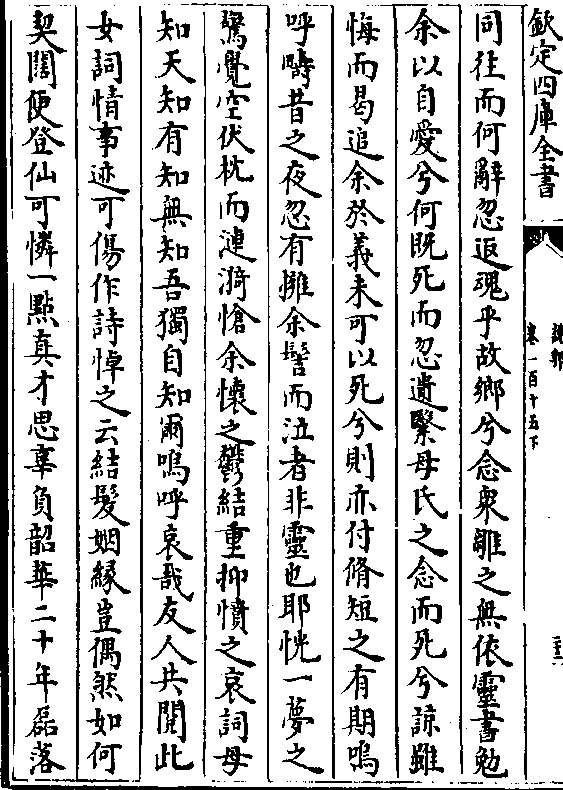 欽定四庫全書
說郛
卷一百十五下
同往而何辭忽返魂乎故鄉兮念衆雛之無依靈書勉
余以自愛兮何既死而忍遺繄母氏之念而死兮諒雖
悔而曷追余於義未可以死兮則亦付脩短之有期嗚
呼疇昔之夜忽有擁余髻而泣者非靈也耶恍一夢之
驚覺空伏枕而漣漪愴余懷之鬱結重抑憤之哀詞母
知天知有知無知吾獨自知爾嗚呼哀哉友人共閱此
女詞情事迹可傷作詩悼之云結髮姻緣豈偶然如何
契闊便登仙可憐一點真才思辜負韶華二十年磊落